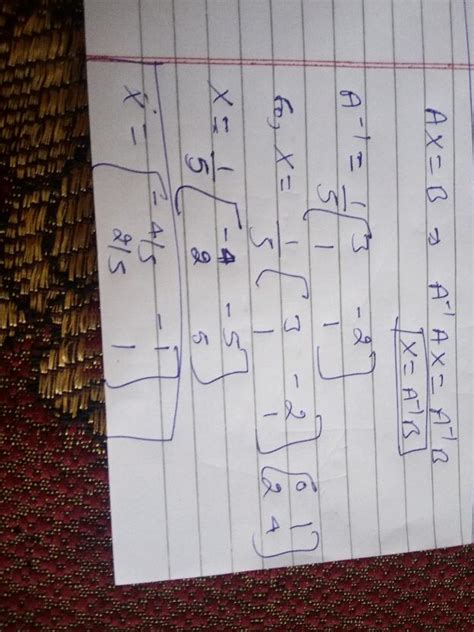 AX = B ⇒ A⁻¹AX = A⁻¹B
X = A⁻¹B
A⁻¹ = 1/5 [3 -2
1 1]
So, X = 1/5 [3 -2
1 1] [0 1
2 4]
X = 1/5 [-4 -5
2 5]
X = [-4/5 -1
2/5 1]